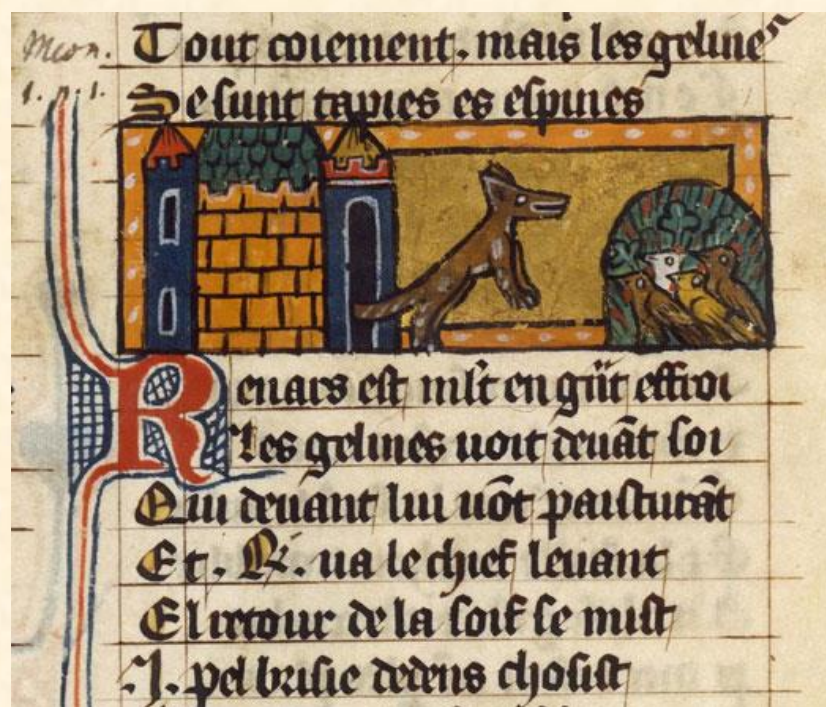 Meon.
Tout coiement. mais les gelines
1. p. 1.
Se sunt tapies es espines
Renars est mlt en gñt effroi
Les gelines uoit deuāt soi
Qui deuant lui uōt paisturāt
Et. R. ua le chief leuant
El retour de la soif se mist
.I. pel brisie dedens choisist